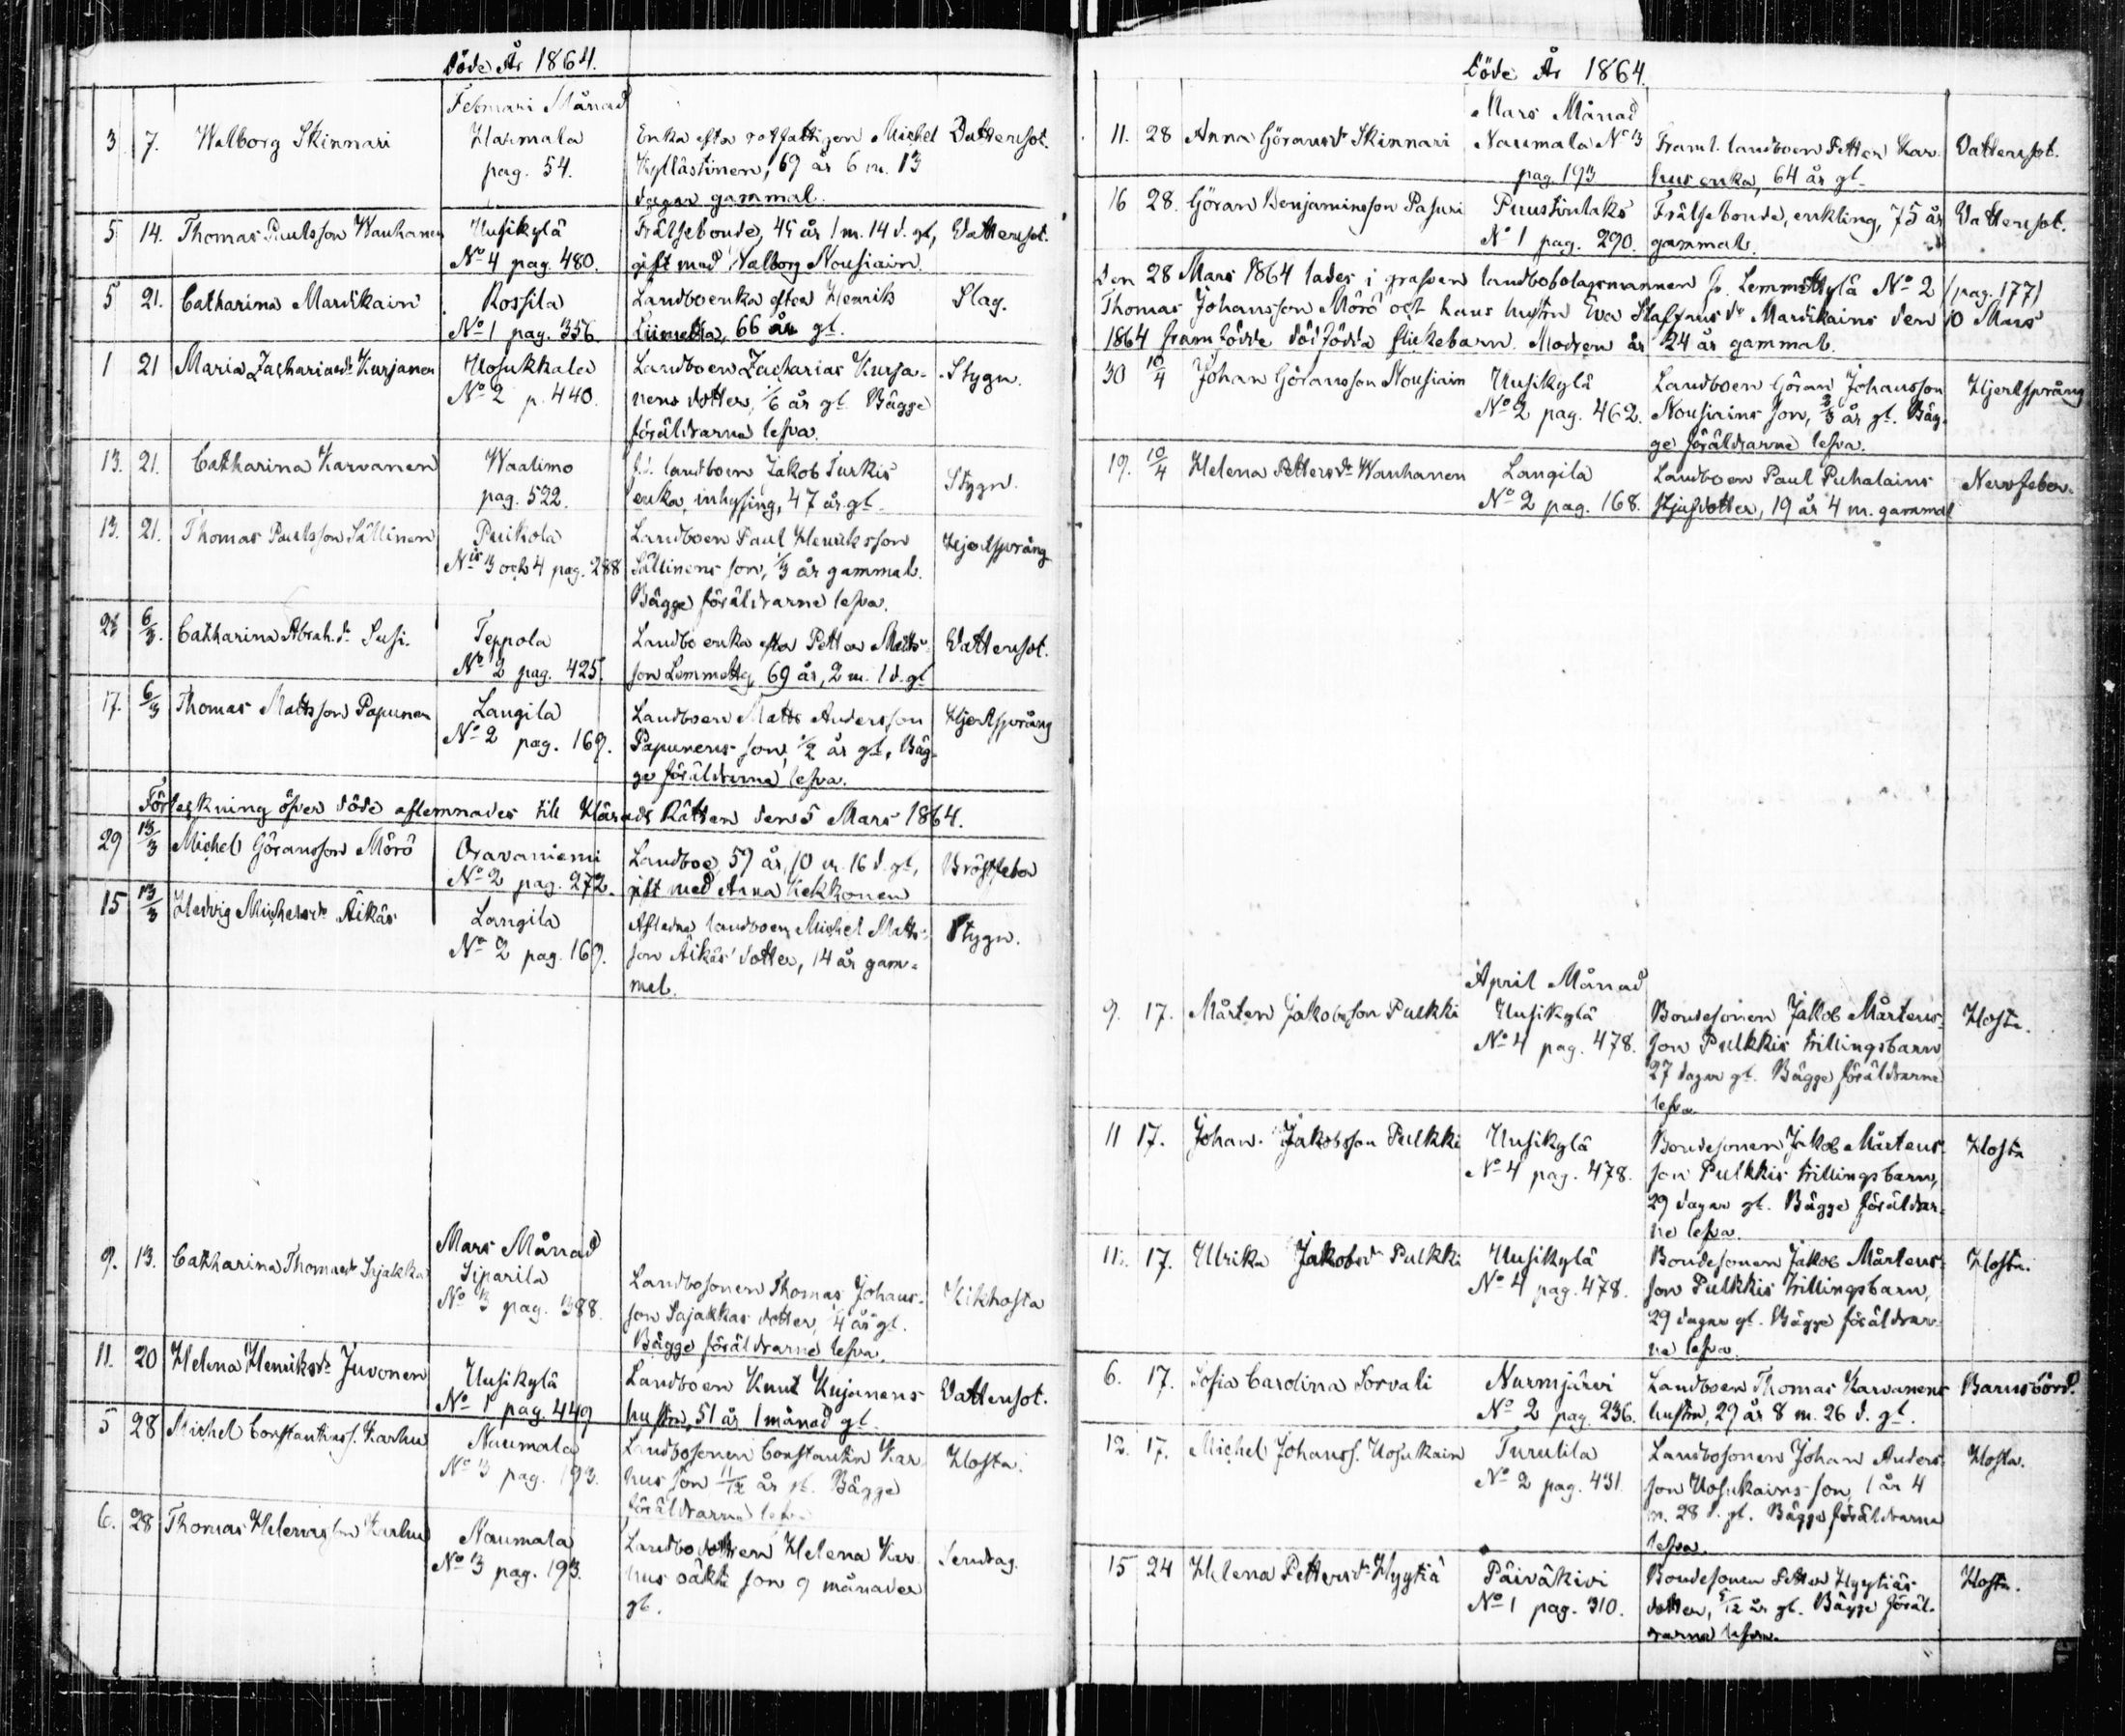 Döde År 1864.
Februari Månad
3. 7. Walborg Skinnari Harmala Enka efter rotfattigen Michel Vattensot.
pag. 54. Kyllästinen, 69 år 6 m. 13
dagar gammal.
5 14. Thomas Paulsson Wanhanen Uusikylä Frälsebonde, 45 år 1 m. 14 d. gl, Vattensot.
No 4 pag. 480. gift med Valborg Nousiain.
5 21. Catharina Mardikain Rossila Landboenka efter Henrik Slag.
No 1 pag. 356 Liimatta, 66 år gl.
1 21 Maria Zachariaedr Kurjanen Uosukkala Landboen Zacharias Kurja- Stygn.
No 2 p. 440. nens dotter, 1/6 år gl. Bägge
föräldrarna lefva.
13. 21. Catharina Karvanen Waalimo f.d. landboen Jakob Turkis Stygn.
pag. 522. enka, inhysing, 47 år gl.
13. 21. Thomas Paulsson Sällinen Puikola Landboen Paul Henriksson Hjertsprång
Nis 3 och 4 pag. 288 Sällinens son, 1/3 år gammal.
Bägge föräldrarne lefva.
6/3. Catharina Abrah.dr Susi. Teppola Landboenka efter Petter Matts- Vattensot.
No 2 pag. 425. son Lemmetty, 69 år, 2 m. 1 d. gl
17. 6/3 Thomas Mattsson Papunen Langila Landboen Matts Andersson Hjertsprång
No 2 pag. 169. Papunens son, 1/2 år gl, Bäg-
ge föräldrarna lefva.
Förteckning öfver döde aflemnades till Härads Rätten den 5 Mars 1864.
29 13/3 Michel Göransson Mörö Oravaniemi Landboe, 59 år, 10 m. 16 d. gl, Bröstfeber
No 2 pag. 272. gift med Anna Kekkonen
15 13/3 Hedvig Michelsdr Äikäs Langila Aflidne landboen Michel Matts- Stygn.
No 2 pag. 169. son Äikäs' dotter, 14 år gam-
mal.
Mars Månad
9. 13. Catharina Thomaedr Sajakka Siparila Landbosonen Thomas Johans- Kikhosta
No 3 pag. 388. son Sajakkas dotter, 1/4 år gl.
Bägge föräldrarne lefva.
11. 20 Helena Henriksdr Juvonen Uusikylä Landboen Knut Kujanens Vattensot.
No 1 pag. 449 hustru, 51 år 1 månad gl.
5 28 Michel Constantinss. Karhu Naumala Landbosonen Constantin Kar Hosta.
No 3 pag. 193. hus son 11/12 år gl. Bägge
föräldrarna lefva
6. 28 Thomas Helenasson Karhu Naumala Landbodottren Helena Kar Sendrag.
No 3 pag. 193. hus oäkta son 9 månader
gl.
Döde År 1864.
Mars Månad
11. 28 Anna Göransdr Skinnari Naumala No 3 Framl. landboen Petter Kar Vattensot.
pag. 193 hus enka, 64 år gl.
16 28. Göran Benjaminsson Pasuri Puustinlaks Frälsebonde, enkling, 75 år Vattensot.
No 1 pag. 290. gammal.
Den 28 Mars 1864 lades i grafven landbobolagsmannen fr. Lemmettylä No 2 (pag. 177)
Thomas Johansson Mörö och hans hustru Eva Staffansdr Mardikains den 10 Mars
1864 framfödde dödfödda flickebarn. Modren är 24 år gammal.
30 10/4 Johan Göransson Nousiain Uusikylä Landboen Göran Johansson Hjertsprång
No 2 pag. 462. Nousiains son, 2/3 år gl. Bäg-
ge föräldrarne lefva.
19. 10/4 Helena Pettersdr Wanhanen Langila Landboen Paul Puhalains Nervfeber.
No 2 pag. 168. stjufdotter, 19 år 4 m. gammal
April Månad
9. 17. Mårten Jakobsson Pulkki Uusikylä Bondesonen Jakob Mårtens- Hosta.
No 4 pag. 478. son Pulkkis trillingsbarn,
27 dagar gl. Bägge föräldrarne
lefva.
11 17. Johan Jakobsson Pulkki Uusikylä Bondesonen Jakob Mårtens- Hosta
No 4 pag. 478. son Pulkkis trillingsbarn,
29 dagar gl. Bägge föräldrar-
ne lefva.
11. 17. Ulrika Jakobsdr Pulkki Uusikylä Bondesonen Jakob Mårtens- Hosta.
No 4 pag. 478. son Pulkkis trillingsbarn,
29 dagar gl. Bägge föräldrar-
ne lefva.
6. 17. Sofia Carolina Sorvali Nurmjärvi Landboen Thomas Karvanens Barnsbörd.
No 2 pag. 236. hustru, 29 år 8 m. 26 d. gl.
12. 17. Michel Johanss. Uosukain Turulila Landbosonen Johan Anders Hosta.
No 2 pag. 431 son Uosukains son, 1 år 4
m. 28 d. gl. Bägge föräldrarna
lefva.
15 24 Helena Pettersdr Hyytiä Päiväkivi Bondesonen Petter Hyytiäs Hosta.
No 1 pag. 310. dotter, 5/12 år gl. Bägge föräl-
drarna lefva.